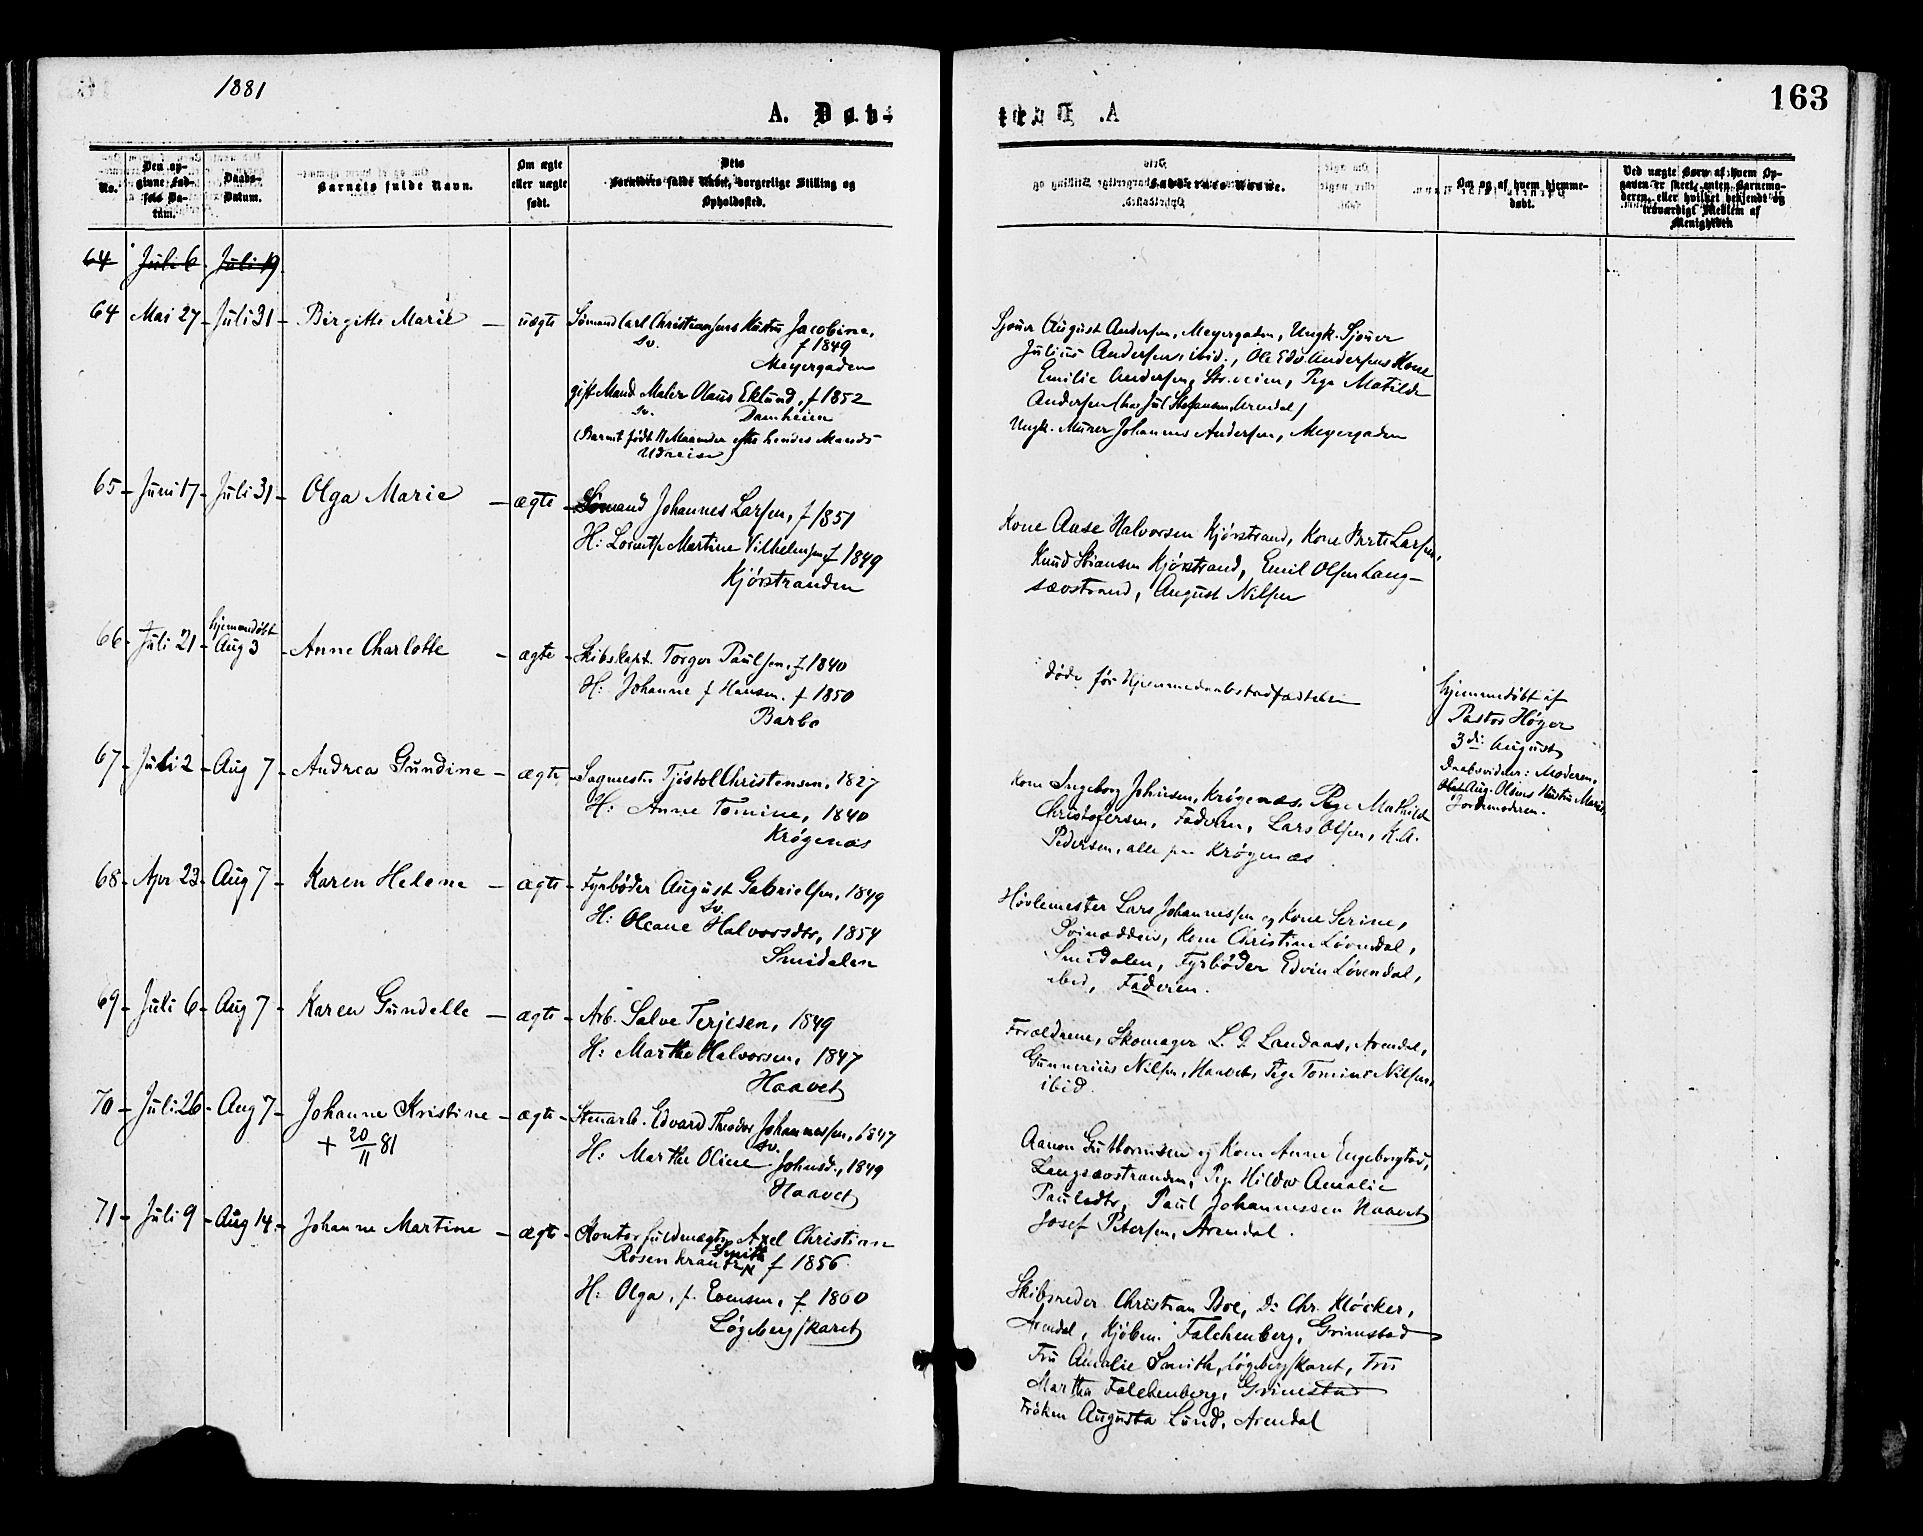 1881
A. Døb-
163
No.
Den op-
givne Fød-
sels Da-
tum.
Daabs-
Datum.
Barnets fulde Navn.
Om ægte
eller uægte
født.
Dets
Forældres fulde Navn, borgerlige Stilling og
Opholdssted.
Faddernes Navne.
Om og af hvem hjemme-
døbt.
Ved uægte Børn af hvem Op-
gaven er skeet, enten Barnemo-
deren, eller hvilket bekjendt og
troværdigt Medlem af
Menigheden
64 Juli 6 Juli 19
64 Mai 27 - Juli 31 - Birgitte Marie - uægte
Sømand Carl Christiansens Hustru Jacobine,
Sv. f 1849
Meyergaden
gift Mand Maler Olaus Eklund, f 1852
Sv. Damheien
(Barnet født 11 Maaneder efter hendes Mands
Udreise)
Sjouer August Andersen, Meyergaden, Ungk. Sjouer
Julius Andersen, ibid., Ole Edv. Andersens Kone
Emilie Andersen, Pige Matilde
Andersen (hos Jul Stefansen, Arendal)
Ungk. Murer Johannes Andersen, Meyergaden
65 - Juni 17 - Juli 31 - Olga Marie - ægte -
Sømand Johannes Larsen, f 1851
H: Lorentse Martine Vilhelmsen f 1849
Kjørstranden
Kone Aase Halvorsen Kjørstrand, Kone Berte Larsen,
Knud Stiansen Kjørstrand, Emil Olsen Lang-
sævstrand, August Nilsen
66 - Juli 21 - hjemmedøbt
Aug 3 - Anne Charlotte - ægte -
Skibskapt. Torger Paulsen, f 1840
H: Johanne f Hansen. f 1850
Barbo
døde før Hjemmedaabstadfæstelsen
hjemmedøbt af
Pastor Høyer
3die August
Daabsvidner: Moderen,
Aug. Olsens Hustru Marie,
Jordemoderen.
67 - Juli 2 - Aug 7 - Andrea Gundine - ægte -
Sagmester Tjøstol Christensen, 1827
H: Anne Tomine, 1840
Krøgenæs
Kone Ingeborg Johnsen, Krøgenæs, Pige Mathilde
Christofersen, Faderen, Lars Olsen, K.A.
Pedersen, alle paa Krøgenæs
68 - Apr 23 - Aug 7 - Karen Helene - ægte -
Fyrbøder August Gabrielsen, 1849
Sv.
H: Oleane Halvorsdtr, 1854
Smidalen
Høvlemester Lars Johannessen og Kone Serine,
Svinodden, Kone Christine Løvendal,
Smidalen, Fyrbøder Edvin Løvendal,
ibid, Faderen.
69 - Juli 6 - Aug 7 - Karen Gundelle - ægte -
Arb. Salve Terjesen, 1849
H: Marthe Halvorsen, 1847
Haavet
Forældrene, Skomager L. G. Landaas, Arendal,
Gunnerius Nilsen, Haavet, Pige Tomine Nilsen,
ibid
70 - Juli 26 - Aug 7 - Johanne Kristine - ægte -
+ 20/11 81
Stenarb. Edvard Theodor Johannessen, 1847
Sv.
H: Marthe Oline Johnsd., 1849
Haavet
Aanon Guttormsen og Kone Anne Engebregtsd,
Langsævstranden, Pige Hilda Amalie
Paulsdtr, Paul Johannessen Haavet
Josef Petersen, Arendal.
71 - Juli 9 - Aug 14 - Johanne Martine - ægte -
Kontorfuldmægtig Axel Christian
Rosenkrantz Smith f 1856
H: Olga, f. Evensen, f 1860
Løgebergskaret
Skibsreder Christian Boe, Do Chr. Kløcker,
Arendal, Kjøbm. Falchenberg, Grimstad
Fru Amalie Smith, Løgebergskaret, Fru
Martha Falchenberg, Grimstad
Frøken Augusta Lund, Arendal